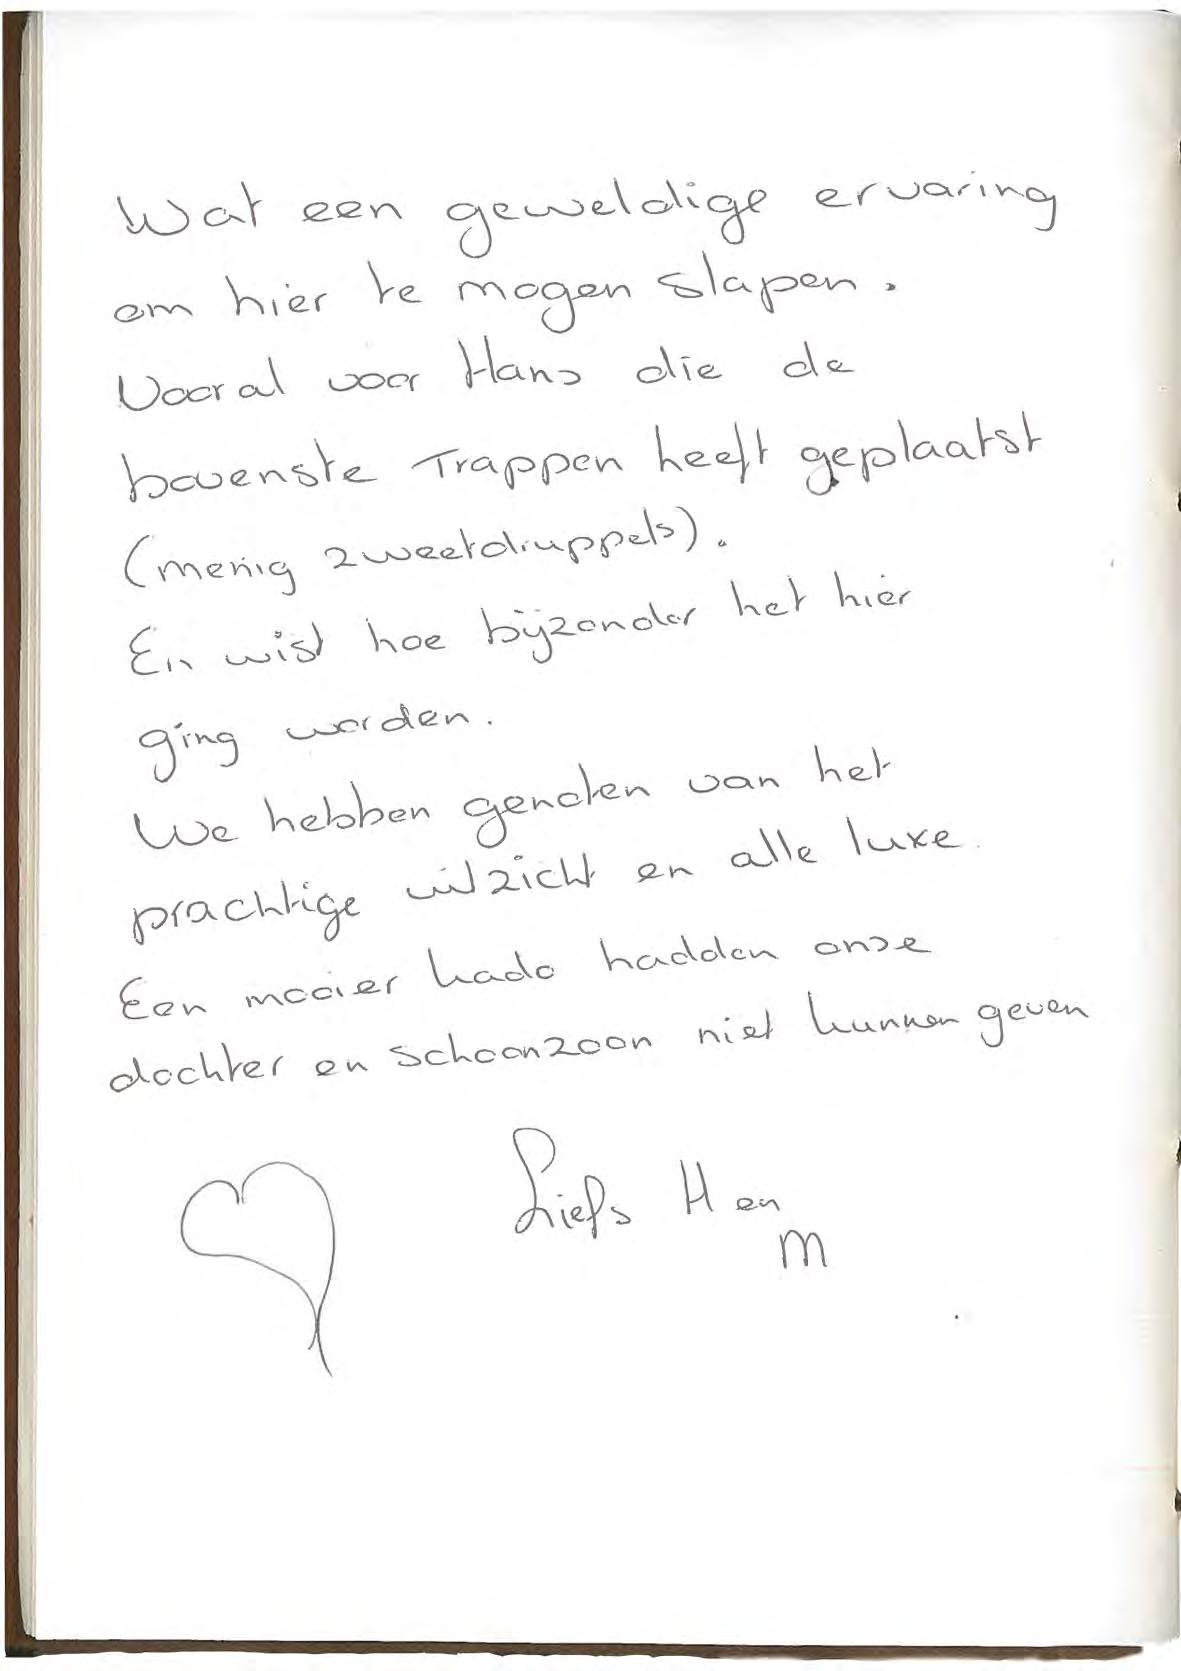 Wat een geweldige ervaring
om hier te mogen slapen.
Vooral voor Hans die de
bovenste Trappen heeft geplaatst
(menig zweetdruppels).
En wist hoe bijzonder het hier
ging worden.
We hebben genoten van het
prachtige uitzicht en alle luxe.
Een mooier kado hadden onze
dochter en schoonzoon niet kunnen geven
Liefs H en
M